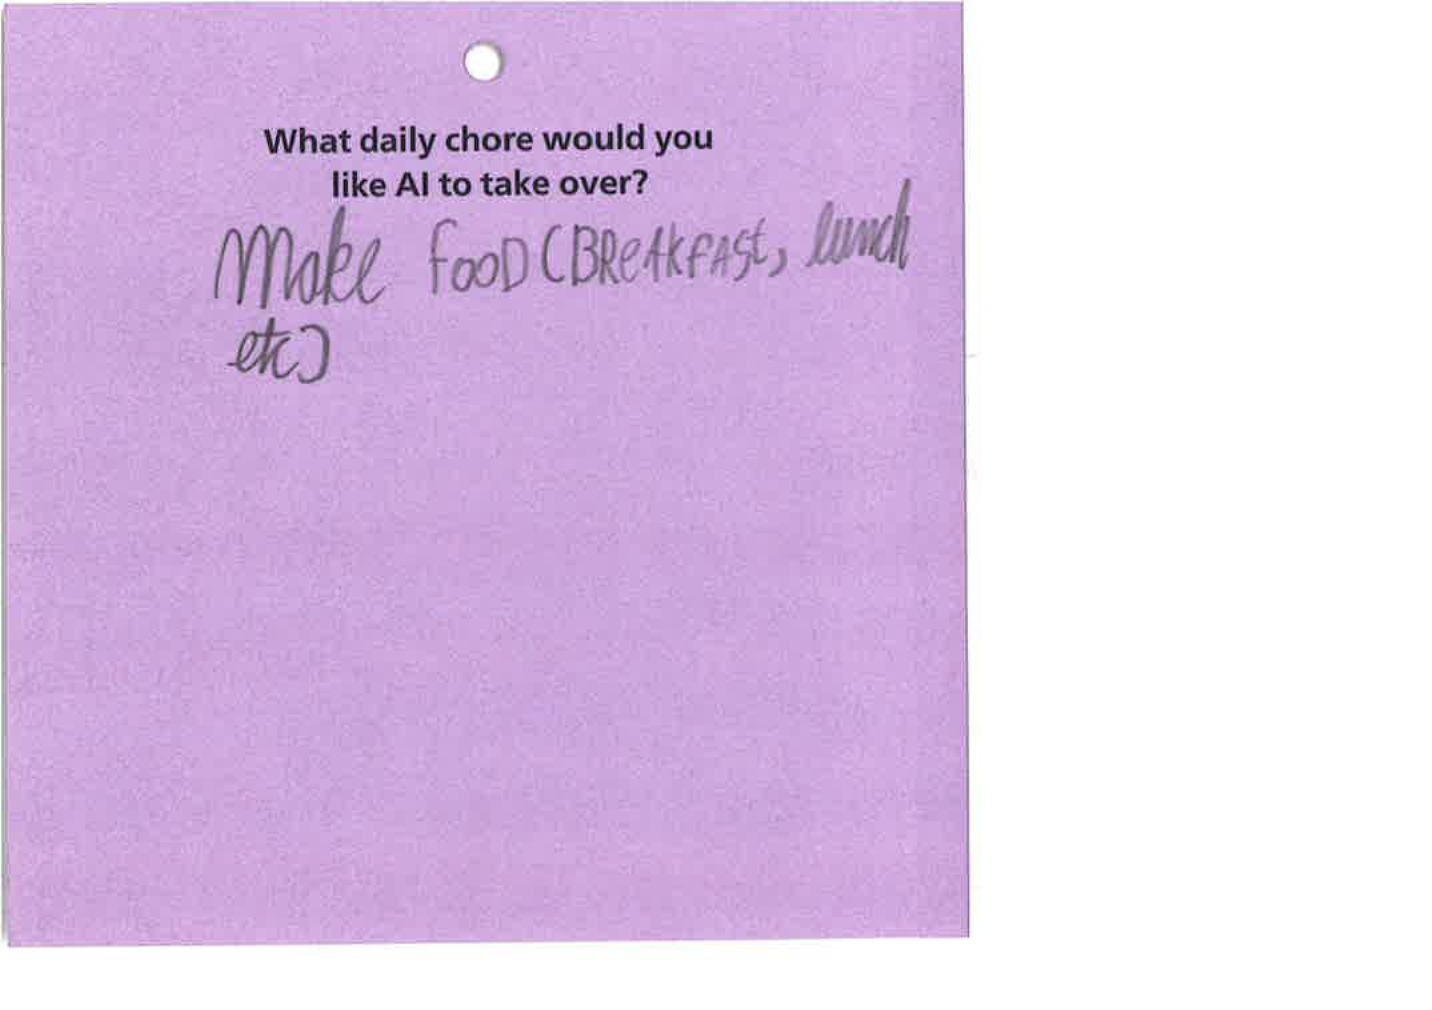 What daily chore would you
like AI to take over?
Make fooD (BReAkfASt, lunch
etc)